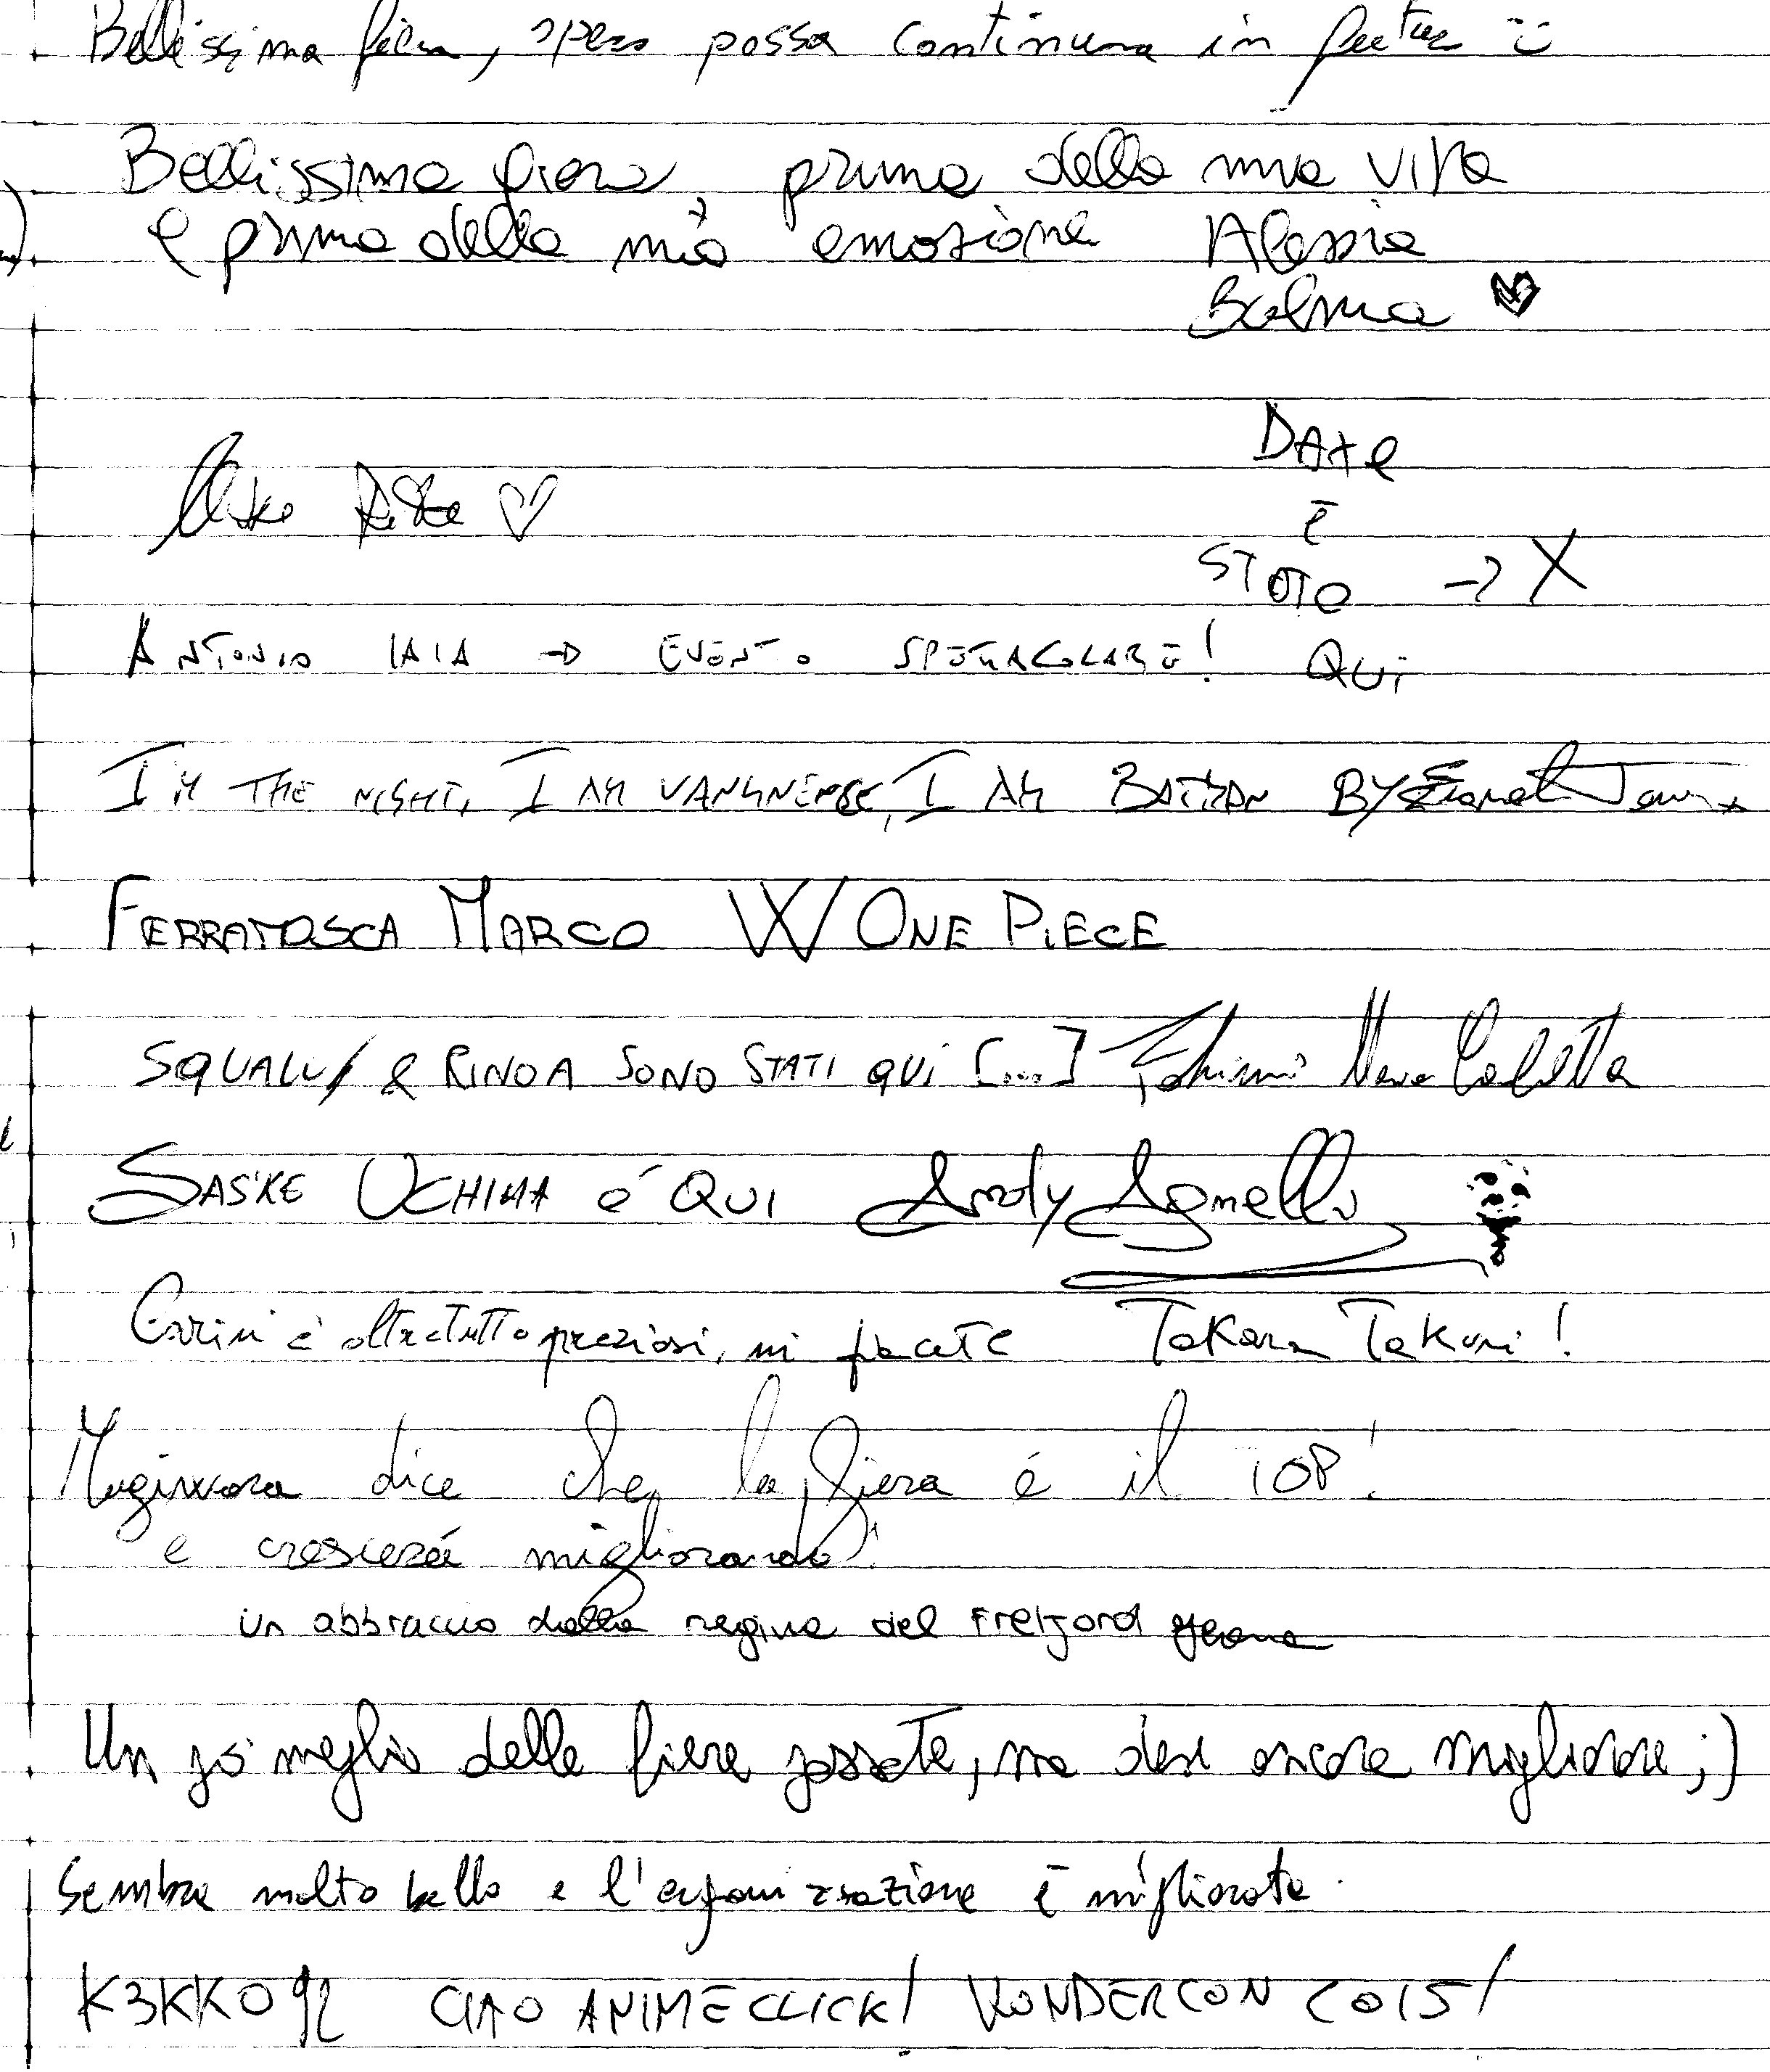 Bellissima fiera, spero possa continuare in futuro
Bellissima fiera, prima della mia vita
e prima della mia emozione Alessia
Bulma ♥
♡
DATE
È
STOTO → X
ANTONIO IAIA → EVENTO SPETTACOLARE! QUI
I'M THE NIGHT, I AM I AM BATMAN BY
FERRATOSCA MARCO W ONE PIECE
SQUALL & RINOA SONO STATI QUI [...]
SAS'KE UCHIHA é QUI Andy Agnello
è oltretutto preziosi, mi piacete Takara Takumi!
Mugiwara dice che la fiera é il TOP!
e crescerá migliorando!
un abbraccio dalla regina del Freljord
Un po' meglio delle fiere passate, ma deve ancora migliorare ;)
Sembra molto bello e l'organizzazione è migliorata.
K3KKO92 CIAO ANIMECLICK! WONDERCON 2015!